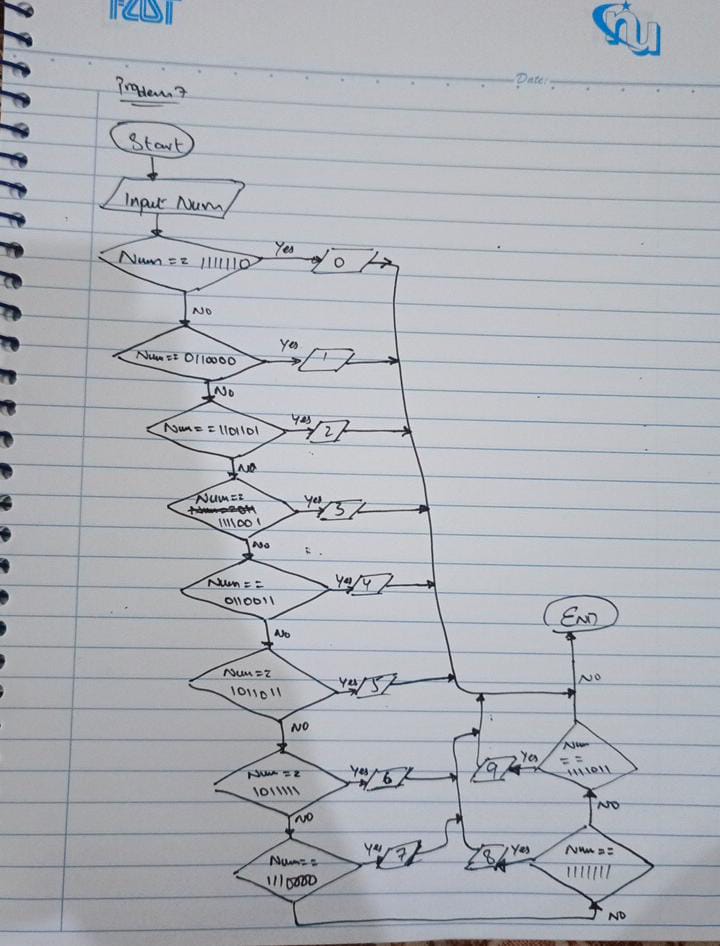 FAST
nu
Date:
Problem 7
Start
Input Num
Num == 1111110
Yes
0
NO
Num == 0110000
Yes
1
NO
Num == 1101101
Yes
2
NO
Num ==
1111001
Yes
3
NO
Num ==
0110011
Yes
4
NO
Num ==
1011011
Yes
5
NO
Num ==
1011111
Yes
6
NO
Num ==
1110000
Yes
7
NO
Num ==
1111111
Yes
8
NO
Num
==
1111011
Yes
9
NO
END